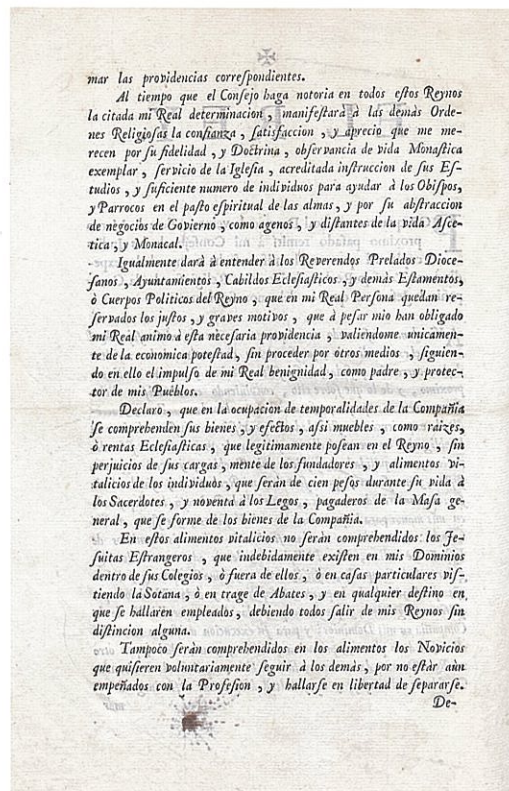 mar las providencias correſpondientes.
Al tiempo que el Conſejo haga notoria en todos eſtos Reynos
la citada mi Real determinacion, manifeſtarà à las demàs Orde-
nes Religioſas la confianza, ſatisfaccion, y aprecio que me me-
recen por ſu fidelidad, y Doctrina, obſervancia de vida Monaſtica
exemplar, ſervicio de la Igleſia, acreditada inſtruccion de ſus Eſ-
tudios, y ſuficiente numero de individuos para ayudar à los Obiſpos,
y Parrocos en el paſto eſpiritual de las almas, y por ſu abſtraccion
de negocios de Govierno, como agenos, y diſtantes de la vida Aſce-
tica, y Monacal.
Igualmente darà à entender à los Reverendos Prelados Dioce-
ſanos, Ayuntamientos, Cabildos Ecleſiaſticos, y demàs Eſtamentos,
ò Cuerpos Politicos del Reyno, que en mi Real Perſona quedan re-
ſervados los juſtos, y graves motivos, que à peſar mio han obligado
mi Real animo à eſta neceſaria providencia, valiendome unicamen-
te de la economica poteſtad, ſin proceder por otros medios, ſiguien-
do en ello el impulſo de mi Real benignidad, como padre, y protec-
tor de mis Pueblos.
Declaro, que en la ocupacion de temporalidades de la Compañia
ſe comprehenden ſus bienes, y efectos, aſsi muebles, como raìzes,
ò rentas Ecleſiaſticas, que legitimamente poſean en el Reyno, ſin
perjuicios de ſus cargas, mente de los fundadores, y alimentos vi-
talicios de los individuos, que ſeràn de cien peſos durante ſu vida à
los Sacerdotes, y noventa à los Legos, pagaderos de la Maſa ge-
neral, que ſe forme de los bienes de la Compañia.
En eſtos alimentos vitalicios no ſeràn comprehendidos los Je-
ſuitas Eſtrangeros, que indebidamente exiſten en mis Dominios
dentro de ſus Colegios, ò fuera de ellos, ò en caſas particulares viſ-
tiendo la Sotana, ò en trage de Abates, y en qualquier deſtino en
que ſe hallaren empleados, debiendo todos ſalir de mis Reynos ſin
diſtincion alguna.
Tampoco ſeràn comprehendidos en los alimentos los Novicios
que quiſieren voluntariamente ſeguir à los demàs, por no eſtàr aùn
empeñados con la Profeſion, y hallarſe en libertad de ſepararſe.
De-